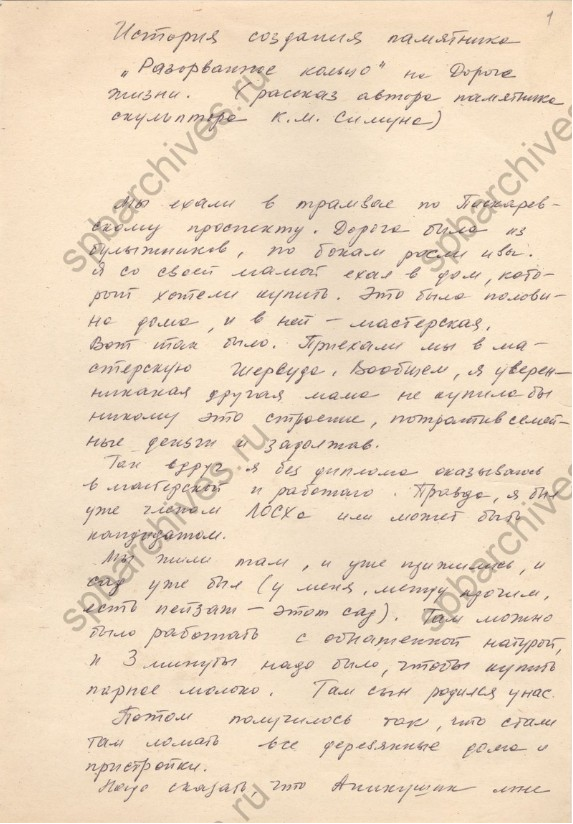 1
История создания памятника
„Разорванное кольцо" на Дороге
жизни. (рассказ автора памятника
скульптора К.М. Симуна)
Мы ехали в трамвае по Пискарев-
скому проспекту. Дорога была из
булыжников, по бокам росли ивы.
Я со своей мамой ехал в дом, кото-
рый хотели купить. Это была полови-
на дома, и в ней – мастерская.
Вот так было. Приехали мы в ма-
стерскую Шервуда. Вообщем, я уверен –
никакая другая мама не купила бы
никому это строение, потратив семей-
ные деньги и задолжав.
Так вдруг я без диплома оказываюсь
в мастерской и работаю. Правда, я был
уже членом ЛОСХа или может быть
кандидатом.
Мы жили там, и уже прижились, и
сад уже был (у меня, между прочим,
есть пейзаж – этот сад). Там можно
было работать с обнаженной натурой,
и 3 минуты надо было, чтобы купить
парное молоко. Там сын родился у нас.
Потом получилось так, что стали
там ломать все деревянные дома и
пристройки.
Надо сказать, что Аникушин мне
spbarchives.ru
spbarchives.ru
spbarchives.ru
spbarchives.ru